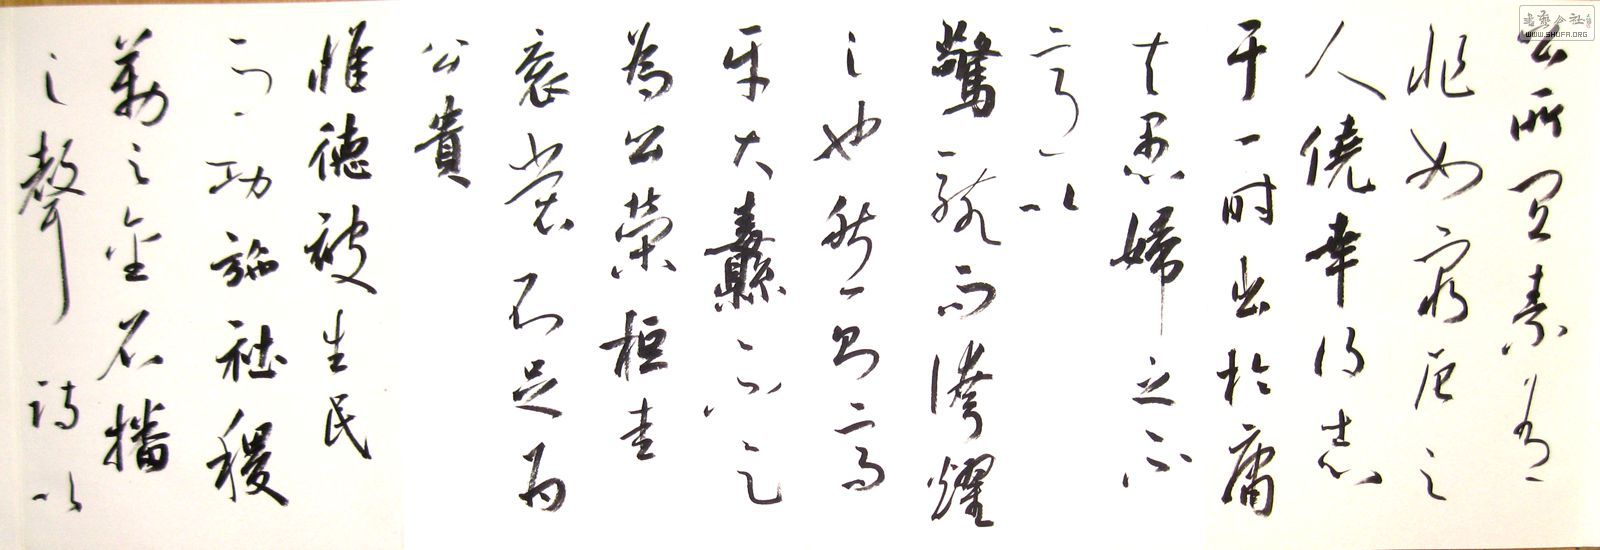 公所宜素有
非如窮厄之
人僥幸得志
于一时出於庸
夫愚婦之不
意以
驚駭而誇耀
之也然則高
牙大纛不足
為公榮桓圭
袞裳不足為
公貴
惟德被生民
而功施社稷
勒之金石播
之聲詩以
WWW.SHUFA.ORG